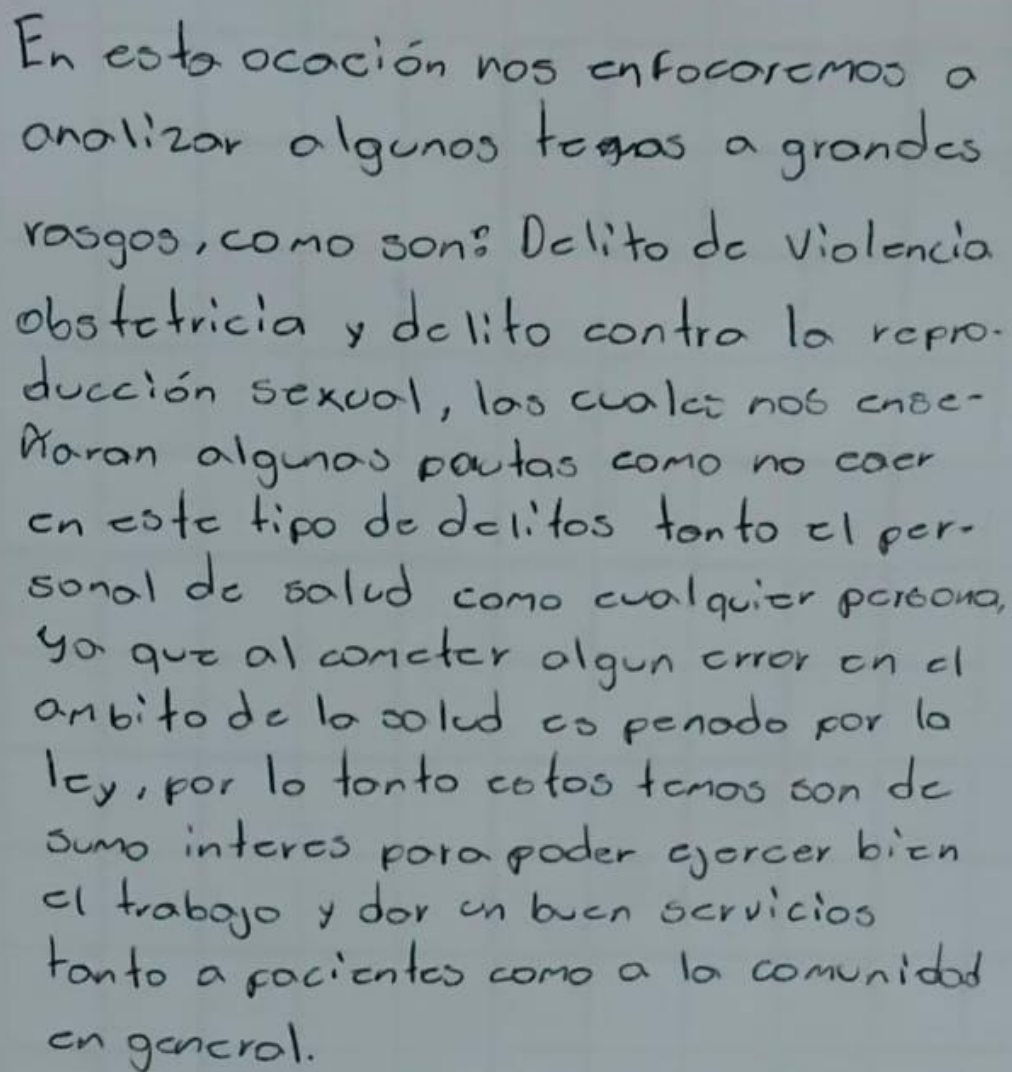 En esta ocación nos enfocaremos a
analizar algunos temas a grandes
rasgos, como son: Delito de violencia
obstetricia y delito contra la repro-
ducción sexual, las cuales nos ense-
ñaran algunas pautas como no caer
en este tipo de delitos tanto el per-
sonal de salud como cualquier persona,
ya que al cometer algun error en el
ambito de la salud es penado por la
ley, por lo tanto estos temas son de
sumo interes para poder ejercer bien
el trabajo y dar un buen servicios
tanto a pacientes como a la comunidad
en general.